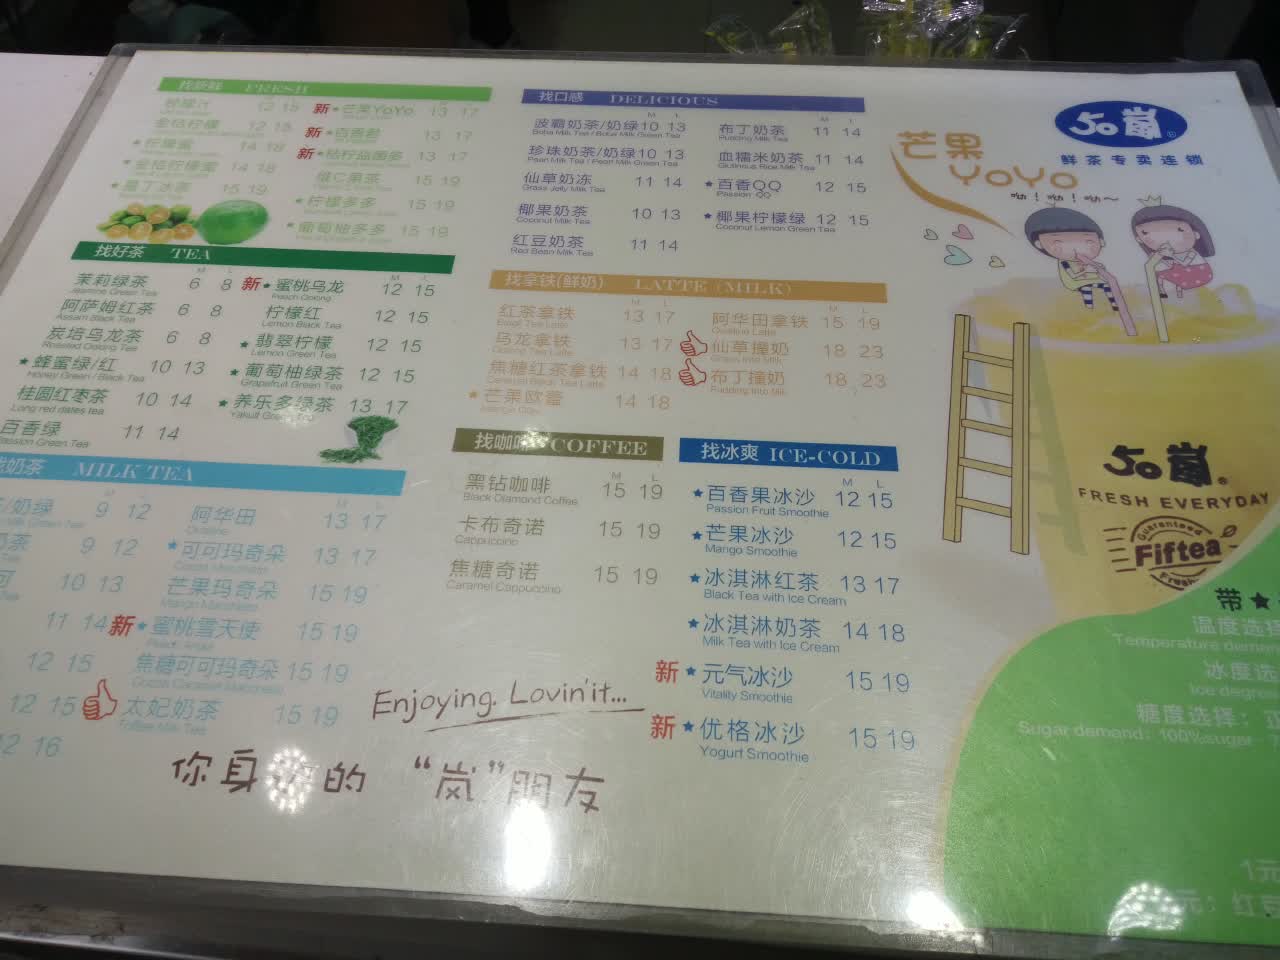 找新鲜 FRESH
柠檬汁 12 15
金桔柠檬 12 15
★柠檬蜜 14 18
★金桔柠檬蜜 14 18
15 19
新★芒果YoYo 13 17
新★百香 13 17
新★桔柠益菌多 13 17
维C果茶 15 19
★柠檬多多 15 19
★葡萄柚多多 15 19
找好茶 TEA
M L
茉莉绿茶 6 8
Jasmine Green Tea
阿萨姆红茶 6 8
Assam Black Tea
炭培乌龙茶 6 8
Roasted Oolong Tea
★蜂蜜绿/红 10 13
Honey Green / Black Tea
桂圆红枣茶 10 14
Long red dates tea
百香绿 11 14
Passion Green Tea
M L
新★蜜桃乌龙 12 15
Peach Oolong
柠檬红 12 15
Lemon Black Tea
★翡翠柠檬 12 15
Lemon Green Tea
★葡萄柚绿茶 12 15
Grapefruit Green Tea
★养乐多绿茶 13 17
Yakult Green Tea
奶茶 MILK TEA
M L
/奶绿 9 12
Milk Green Tea
奶茶 9 12
10 13
11 14
12 15
12 15
12 16
M L
阿华田 13 17
Ovaltine
★可可玛奇朵 13 17
Cocoa Macchiato
芒果玛奇朵 15 19
Mango Macchiato
新★蜜桃雪天使 15 19
焦糖可可玛奇朵 15 19
Cocoa Caramel Macchiato
太妃奶茶 15 19
Toffee Milk Tea
找口感 DELICIOUS
M L
波霸奶茶/奶绿 10 13
Boba Milk Tea / Boba Milk Green Tea
珍珠奶茶/奶绿 10 13
Pearl Milk Tea / Pearl Milk Green Tea
仙草奶冻 11 14
Grass Jelly Milk Tea
椰果奶茶 10 13
Coconut Milk Tea
红豆奶茶 11 14
Red Bean Milk Tea
M L
布丁奶茶 11 14
Pudding Milk Tea
血糯米奶茶 11 14
Glutinous Rice Milk Tea
★百香QQ 12 15
Passion QQ
★椰果柠檬绿 12 15
Coconut Lemon Green Tea
找拿铁(鲜奶) LATTE（MILK）
M L
红茶拿铁 13 17
Black Tea Latte
乌龙拿铁 13 17
Oolong Tea Latte
焦糖红茶拿铁 14 18
Caramel Black Tea Latte
★芒果欧蕾 14 18
M L
阿华田拿铁 15 19
Ovaltine Latte
仙草撞奶 18 23
Grass into Milk
布丁撞奶 18 23
Pudding into Milk
找咖啡 COFFEE
M L
黑钻咖啡 15 19
Black Diamond Coffee
卡布奇诺 15 19
Cappuccino
焦糖奇诺 15 19
Caramel Cappuccino
找冰爽 ICE-COLD
M L
★百香果冰沙 12 15
Passion Fruit Smoothie
★芒果冰沙 12 15
Mango Smoothie
★冰淇淋红茶 13 17
Black Tea with Ice Cream
★冰淇淋奶茶 14 18
Milk Tea with Ice Cream
新★元气冰沙 15 19
Vitality Smoothie
新★优格冰沙 15 19
Yogurt Smoothie
Enjoying. Lovin'it...
你身 的 “岚”朋友
50嵐®
鲜茶专卖连锁
芒果
YoYo
呦！呦！呦～
50嵐®
FRESH EVERYDAY
Guaranteed
Fiftea
Fresh
带★
温度选择
Temperature deman
冰度选
Ice degree
糖度选择：正
Sugar demand: 100%sugar
1元
元：红豆